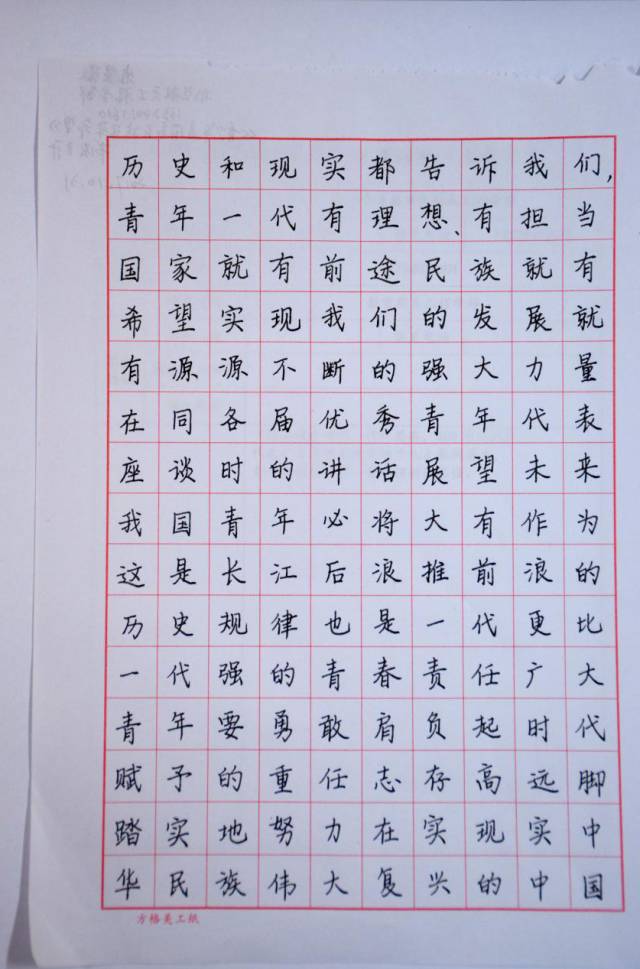 历史和现实都告诉我们,
青年一代有理想、有担当
国家就有前途民族就有
希望实现我们的发展就
有源源不断的强大力量
在同各届优秀青年代表
座谈时的讲话展望未来
我国青年必将大有作为
这是长江后浪推前浪的
历史规律也是一代更比
一代强的青春责任广大
青年要勇敢肩负起时代
赋予的重任志存高远脚
踏实地努力在实现实中
华民族伟大复兴的中国
方格美工纸